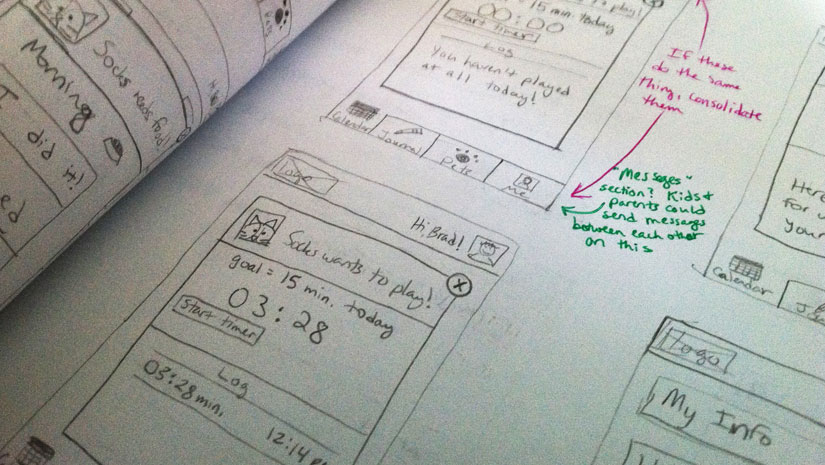 Socks needs food!
Morning
I did it!
15 min. today
00:00
Start timer
Log
You haven't played
at all today!
Calendar
Journal
Pets
Me
If these
do the same
thing, consolidate
them
"Messages"
section? Kids +
parents could
send messages
between each other
on this
Logo
Hi Brad!
Socks wants to play!
goal = 15 min. today
03:28
Start timer
Log
03:28 min.
12:14
Calendar
Logo
My Info